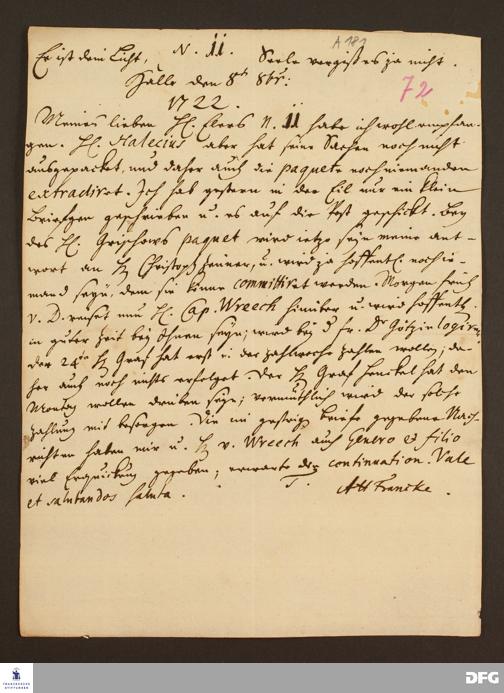 A 181
Er ist dein Licht, N. 11. Seele vergiß es ja nicht.
Halle den 8t 8br:
72
1722.
Meines lieben H. Elers N. 11 habe ich wohl empfan-
gen. H. Halecius aber hat seine Sachen noch nicht
ausgepacket, und daher auch die paquete noch niemanden
extradiret. Ich hab gestern in der Eil nur ein klein
Briefgen geschrieben u. es auf die Post geschickt. Bey
des H. Grischows paquet wird ietzo seyn meine ant-
wort an H. Christoph u. wird ja hoffentl. noch ie-
mand seyn, dem sie könne committiret werden. Morgen früh
v. D. reiset nun H. Cap. Wreech hinüber u. wird hoffentl.
in guter Zeit bey Ihnen seyn; wird bey Fr. Dr Götzin logiren
der 24 H. Graf hat erst in der Zahlwoche zahlen wollen; da-
her auch noch nichts erfolget. Der H. Graf Henckel hat den
Montag wollen drüben seyn; vermuthlich wird der solche
Zahlung mit besorgen. Die im gestrigen briefe gegebene Nach-
richten haben mir u. H. v. Wreech auch Genero & filio
viel Erquickung gegeben; erwarte continuation. Vale
et salutandos saluta.
AHFrancke.
FRANCKESCHE
STIFTUNGEN
DFG